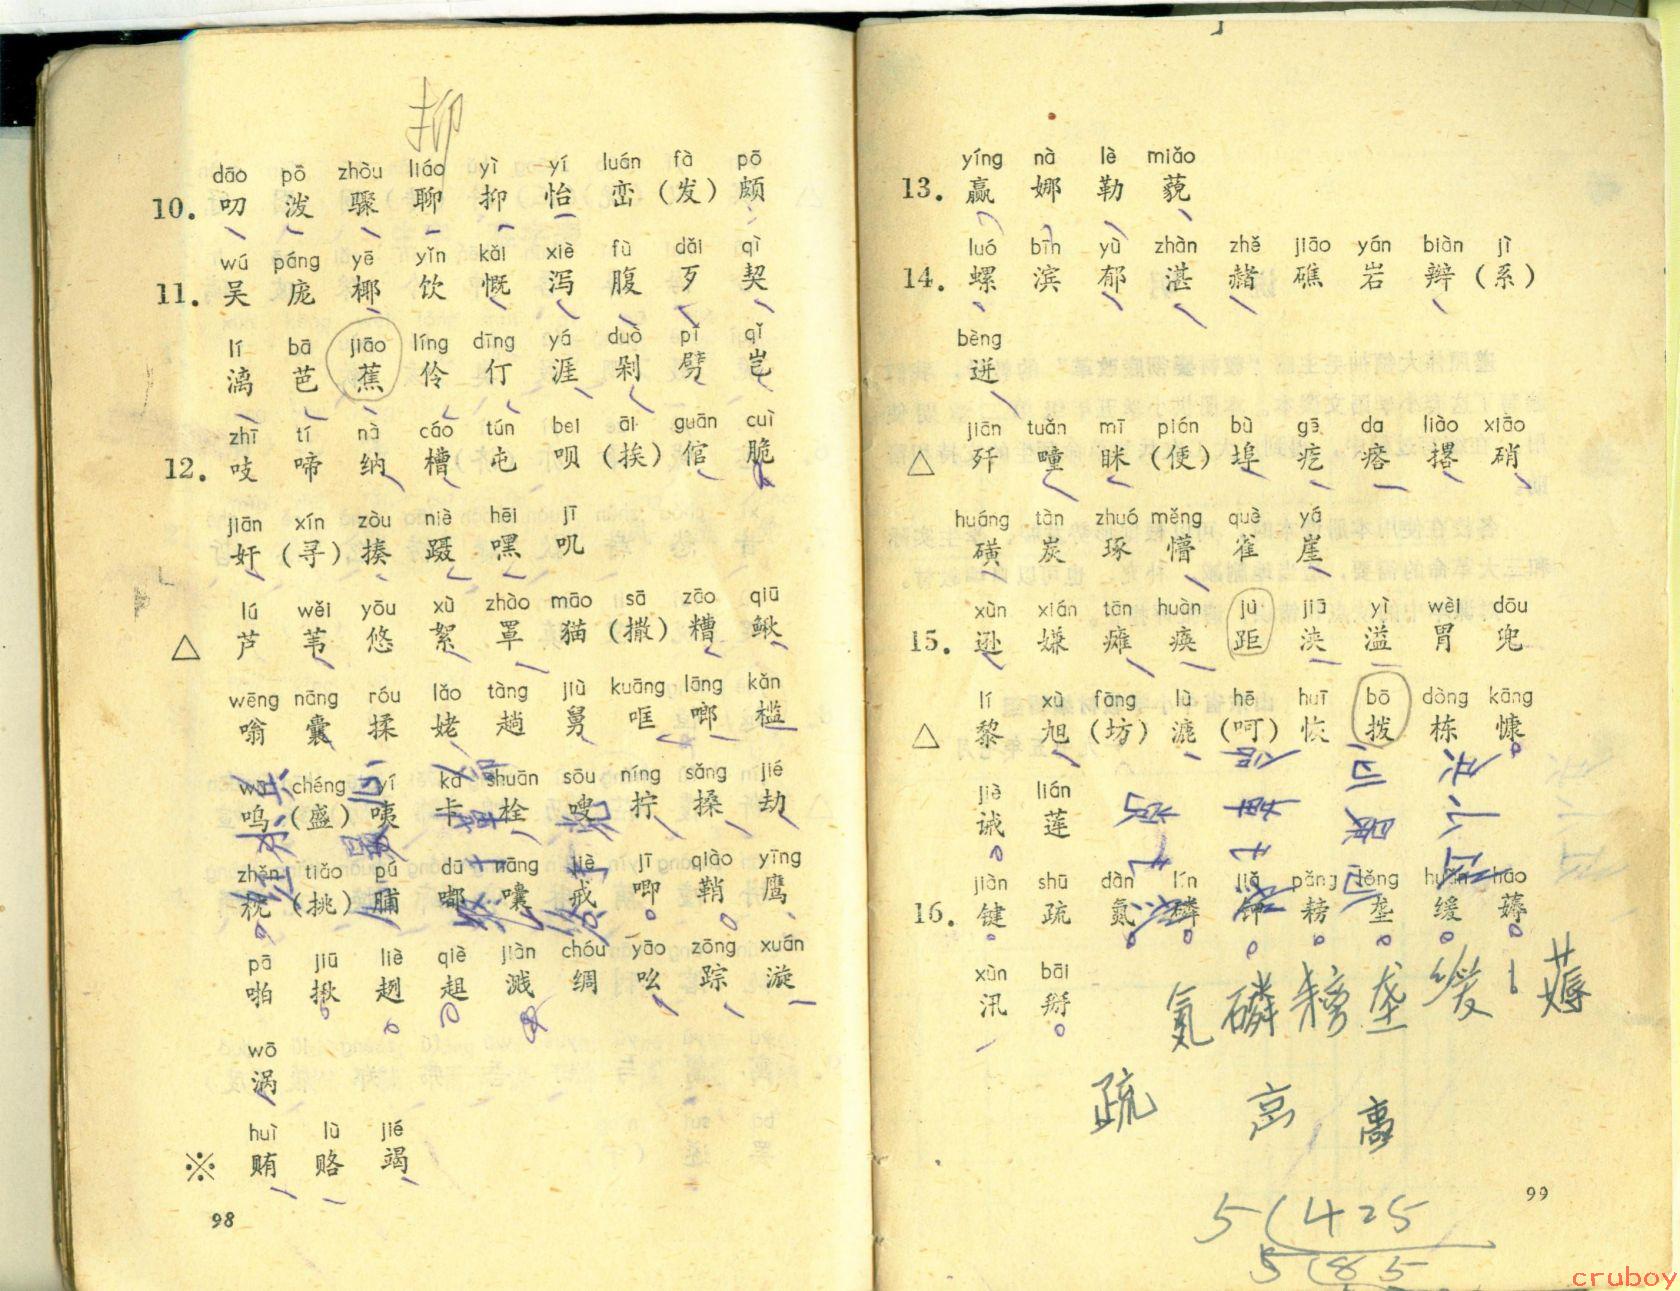 抑
dāo pō zhòu liáo yì yí luán fà pō
10. 叨 泼 骤 聊 抑 怡 峦 (发) 颇
wú páng yē yǐn kǎi xiè fù dǎi qì
11. 吴 庞 椰 饮 慨 泻 腹 歹 契
lí bā jiāo líng dīng yá duò pǐ qǐ
漓 芭 蕉 伶 仃 涯 剁 劈 岂
zhī tí nà cáo tún bei āi guān cuì
12. 吱 啼 纳 槽 屯 呗 (挨) 倌 脆
jiān xín zòu niè hēi jī
奸 (寻) 揍 蹑 嘿 叽
lú wěi yōu xù zhào māo sā zāo qiū
△ 芦 苇 悠 絮 罩 猫 (撒) 糟 鳅
wēng náng róu lǎo tàng jiù kuāng lāng kǎn
嗡 囊 揉 姥 趟 舅 哐 啷 槛
wū chéng yí kǎ shuān sōu níng sǎng jié
呜 (盛) 咦 卡 栓 嗖 拧 搡 劫
zhěn tiǎo pú dū nāng jiè jī qiào yīng
枕 (挑) 脯 嘟 囔 戒 唧 鞘 鹰
pā jiū liè qiè jiàn chóu yāo zōng xuán
啪 揪 趔 趄 溅 绸 吆 踪 漩
wō
涡
huì lù jié
※ 贿 赂 竭
98
yíng nà lè miǎo
13. 赢 娜 勒 藐
luó bīn yù zhàn zhě jiāo yán biàn jì
14. 螺 滨 郁 湛 赭 礁 岩 辩 (系)
bèng
迸
jiān tuǎn mī pián bù gē da liào xiāo
△ 歼 疃 眯 (便) 埠 疙 瘩 撂 硝
huáng tàn zhuó měng què yá
磺 炭 琢 懵 雀 崖
xùn xián tān huàn jù jiā yì wèi dōu
15. 逊 嫌 瘫 痪 距 浃 溢 胃 兜
lí xù fāng lù hē huī bō dòng kāng
△ 黎 旭 (坊) 漉 (呵) 恢 拨 栋 慷
jiè lián
诫 莲
jiàn shū dàn lín jiǎ pǎng lǒng huǎn hāo
16. 键 疏 氮 磷 钾 耪 垄 缓 薅
xùn bāi
汛 掰
氮 磷 耪 垄 缓 薅
疏
99
5 ( 425
5 ( 85
cruboy